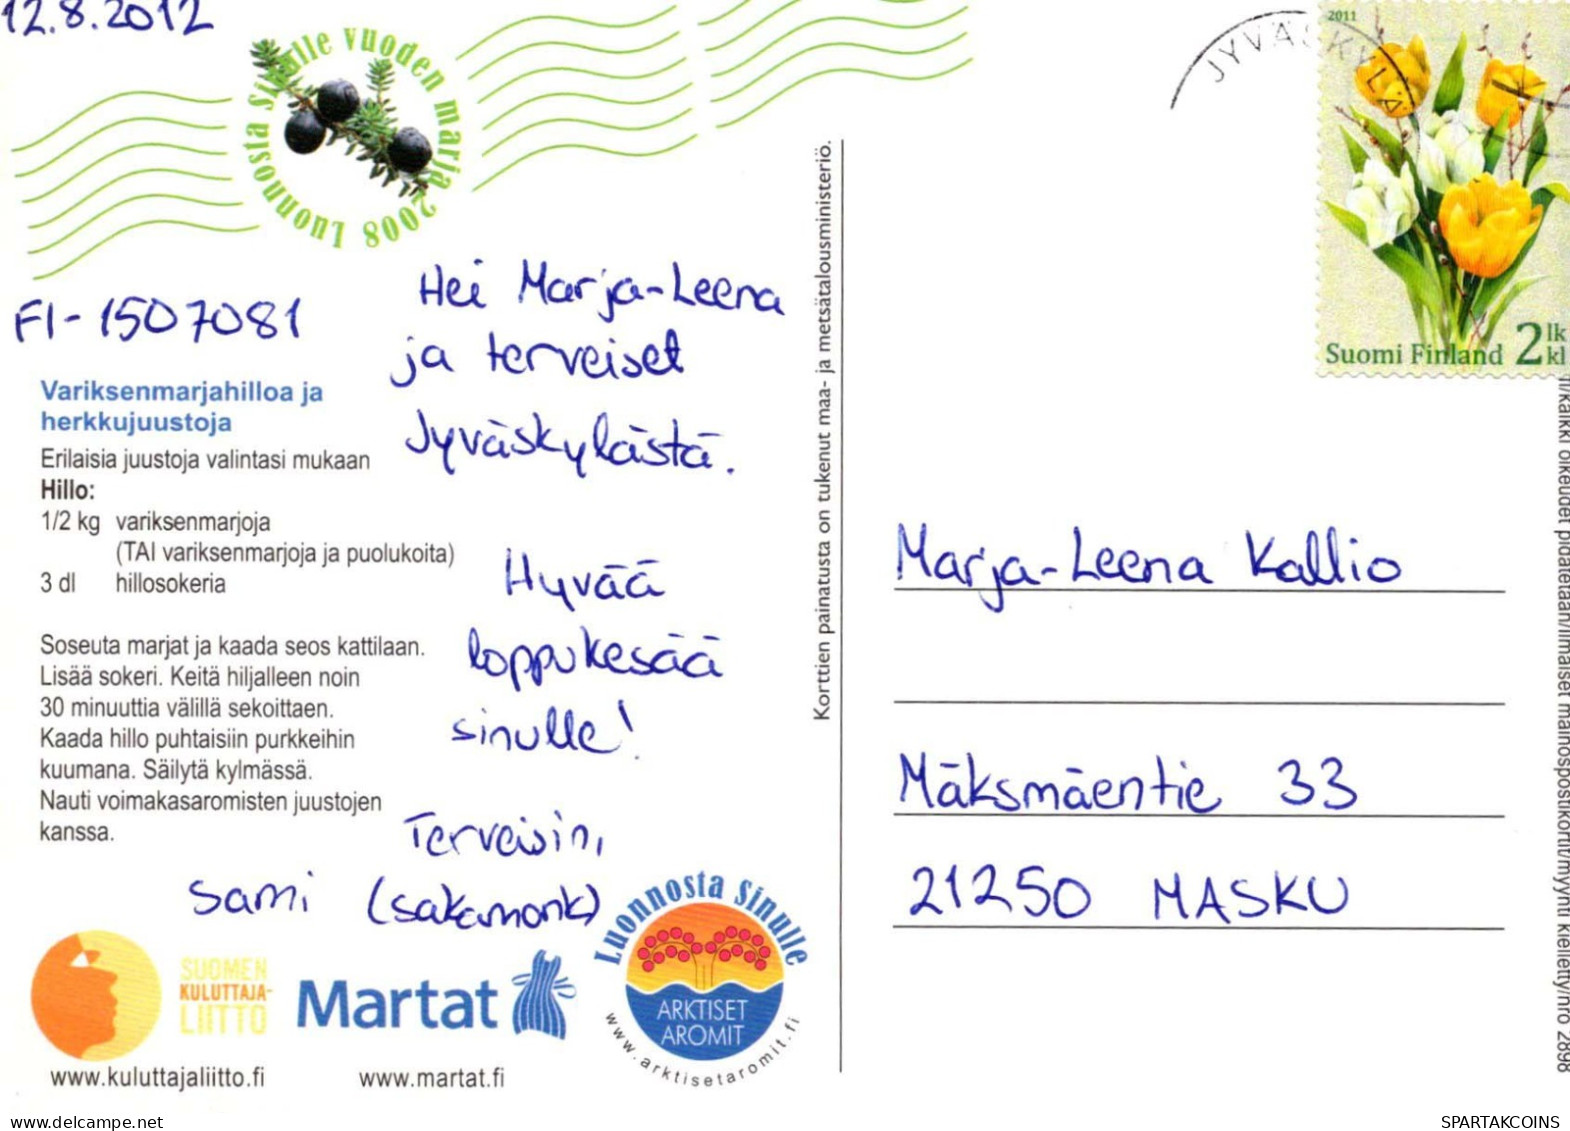 12.8.2012
Luonnosta Sinulle vuoden marja 2008
FI-1507081
Hei Marja-Leena
ja terveiset
Jyväskylästä.
Hyvää
loppukesää
sinulle!
Terveisin,
Sami (sakamonk)
Variksenmarjahilloa ja
herkkujuustoja
Erilaisia juustoja valintasi mukaan
Hillo:
1/2 kg variksenmarjoja
(TAI variksenmarjoja ja puolukoita)
3 dl hillosokeria
Soseuta marjat ja kaada seos kattilaan.
Lisää sokeri. Keitä hiljalleen noin
30 minuuttia välillä sekoittaen.
Kaada hillo puhtaisiin purkkeihin
kuumana. Säilytä kylmässä.
Nauti voimakasaromisten juustojen
kanssa.
SUOMEN
KULUTTAJA-
LIITTO
www.kuluttajaliitto.fi
Martat
www.martat.fi
Luonnosta Sinulle
ARKTISET
AROMIT
www.arktisetaromit.fi
Korttien painatusta on tukenut maa- ja metsätalousministeriö.
JYVÄSKYLÄ
2011
Suomi Finland 2 lk
kl
Marja-Leena Kallio
Mäksmäentie 33
21250 MASKU
kaikki oikeudet pidätetään/ilmaiset mainospostikortit/myynti kielletty/nro 2898
www.delcampe.net
SPARTAKCOINS